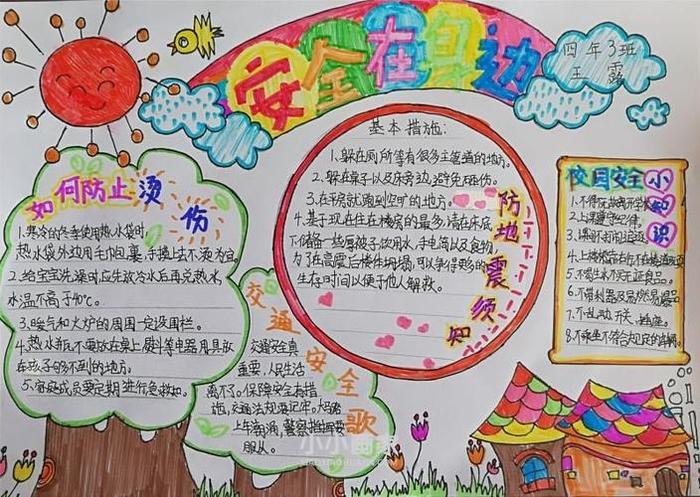 安全在身边
四年3班
王露
如何防止烫伤
1.寒冷的冬季使用热水袋时,
热水袋外边用毛巾包裹,手摸上去不烫为宜。
2.给宝宝洗澡时应先放冷水后再兑热水,
水温不高于40℃。
3.暖气和火炉的周围一定设围栏。
4.热水瓶不要放在桌上,熨斗等电器用具放
在孩子够不到的地方。
5.家庭成员要定期进行急救知。
基本措施:
1.躲在厕所等有很多主管道的地方。
2.躲在桌子以及床旁边,避免砸伤。
3.在平房就跑到空旷的地方。
4.基于现在住在楼房的最多,请在床底
下储备一些厚被子,饮用水,手电筒以及食物,
为了在高震后楼体坍塌,可以争得更多的
生存时间以便于他人解救。
防地震须知
校园安全小知识
1.不得玩
2.上课遵守纪律。
3.课间不
4.上楼梯靠右行
5.不喝生水不买三无食品。
6.不带利器及易燃易爆品
7.不乱动开关、插座。
8.不乘坐不符合规定的车辆。
交通安全歌
交通安全真
重要,人民生活
离不了。保障安全有措
施,交通法规要记牢。大马路
上车辆涌,警察指挥要
服从。